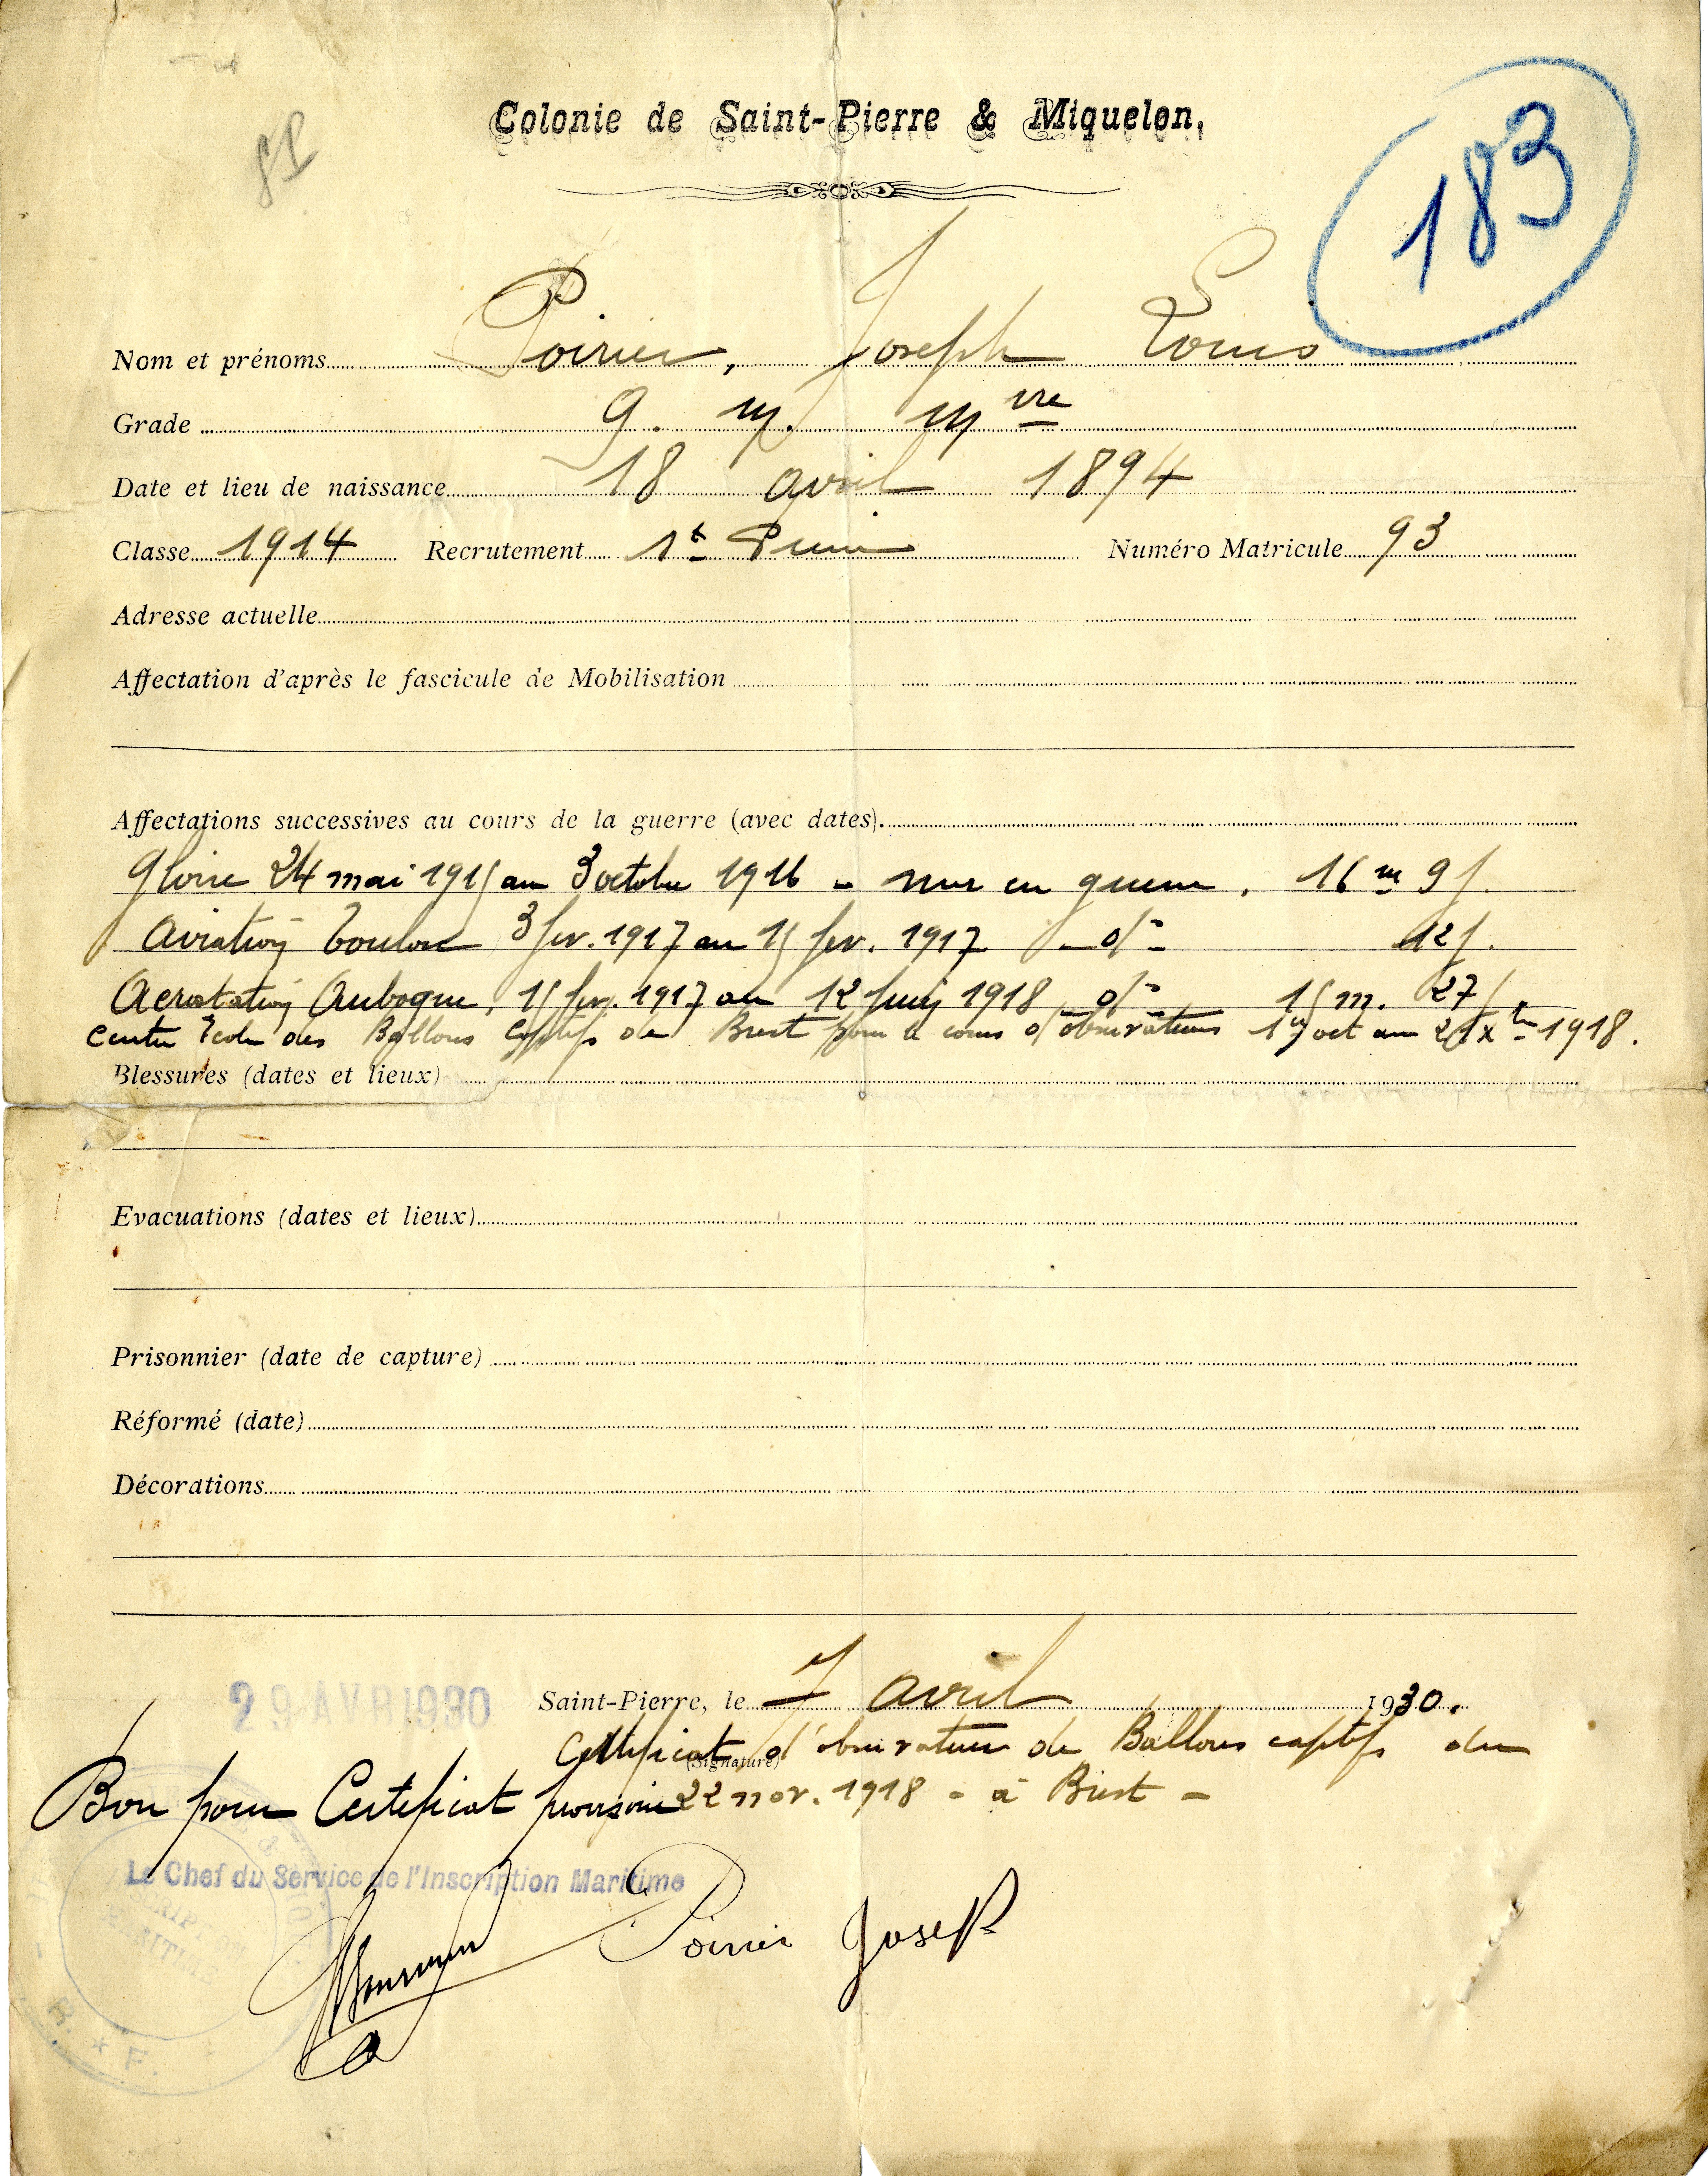 Colonie de Saint-Pierre & Miquelon,
183
Nom et prénoms Poirier, Joseph Louis
Grade Q. M. M vre
Date et lieu de naissance 18 avril 1894
Classe 1914 Recrutement St Pierre Numéro Matricule 93
Adresse actuelle
Affectation d'après le fascicule de Mobilisation
Affectations successives au cours de la guerre (avec dates).
Gloire 24 mai 1915 au 3 octobre 1916 - mer en guerre, 16 m 9 j.
Aviation Toulon 3 fev. 1917 au 15 fev. 1917 - d° - 12 j.
Aerostation Aubagne, 15 fev. 1917 au 12 juin 1918 d° 15 m. 27 j.
Centre Ecole des Ballons Captifs de Brest pour le cours d'observateurs 1er oct au 21 Xbre 1918.
Blessures (dates et lieux)
Evacuations (dates et lieux)
Prisonnier (date de capture)
Réformé (date)
Décorations
29 AVR 1930
Saint-Pierre, le 7 avril 1930.
Certificat d'observateur de Ballons captifs du
(Signature)
Bon pour Certificat provisoire 22 nov. 1918 - à Brest -
Le Chef du Service de l'Inscription Maritime
INSCRIPTION
MARITIME
Poirier Joseph
R. * F.